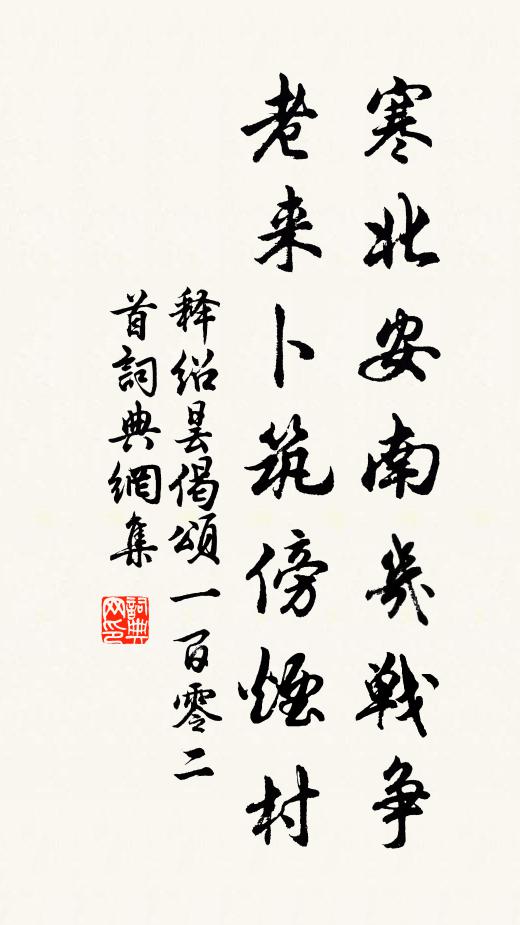 寒北安南幾戦争
老来卜筑傍煙村
释绍昙偈頌一百零二
首詞典網集
詞典网印